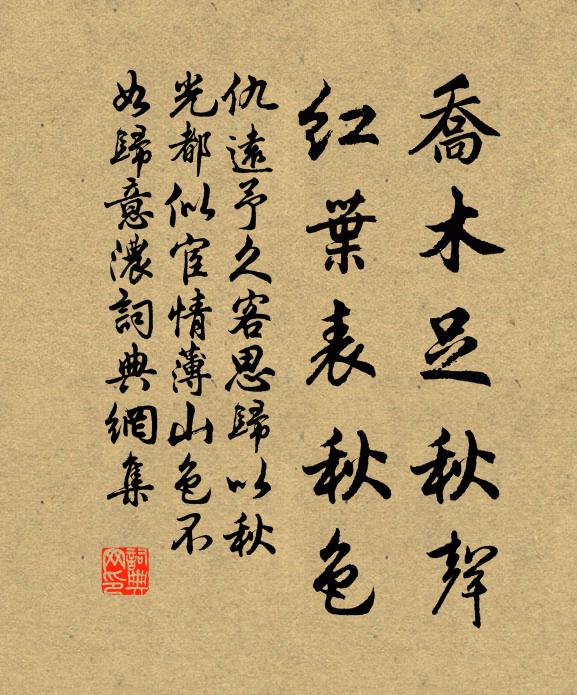 喬木足秋聲
紅葉表秋色
仇遠予久客思歸以秋
光都似宦情薄山色不
如歸意濃詞典網集
詞典网印